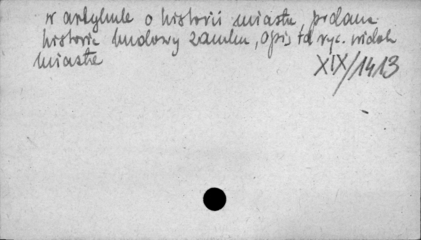 w artykule o historii miasta, podana
historia budowy zamku, opis td ryc. widok
miasta
XIX/1413